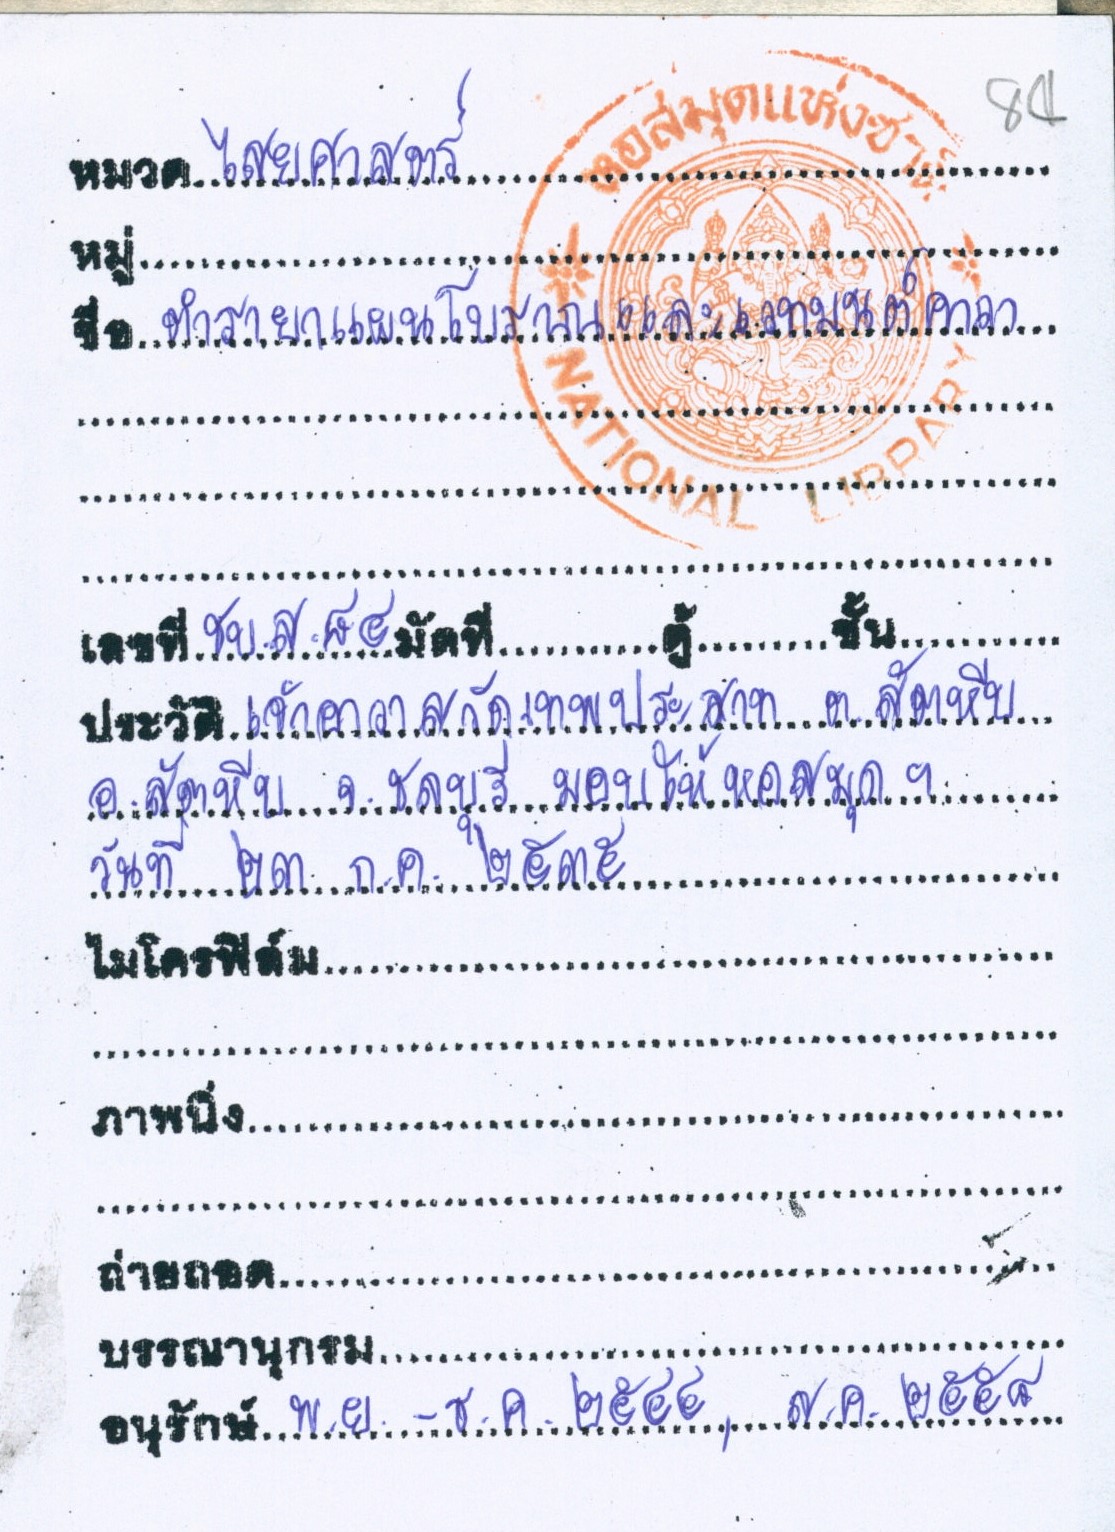 84
หอสมุดแห่งชาติ
NATIONAL LIBRARY
หมวด ไสยศาสตร์
หมู่
ชื่อ ตำรายาแผนโบราณ และเวทมนต์คาถา
เลขที่ ชบ.ส.๘๔ มัดที่ ตู้ ชั้น
ประวัติ เจ้าอาวาสวัดเทพประสาท ต.สัตหีบ
อ.สัตหีบ จ.ชลบุรี มอบให้หอสมุด ฯ
วันที่ ๒๓ ก.ค. ๒๕๓๕
ไมโครฟิล์ม
ภาพนิ่ง
ถ่ายถอด
บรรณานุกรม
อนุรักษ์ พ.ย. - ธ.ค. ๒๕๔๔, ส.ค. ๒๕๕๘